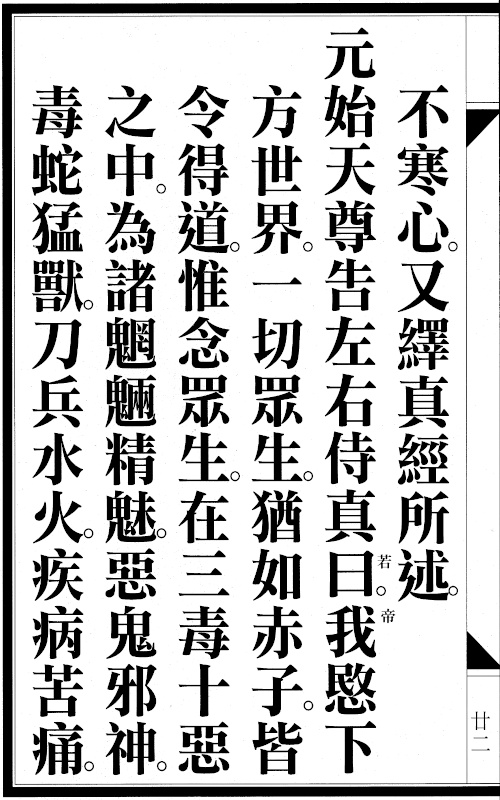 不寒心。又繹真經所述。
元始天尊告左右侍真曰。我愍下
方世界。一切眾生。猶如赤子。皆
令得道。惟念眾生。在三毒十惡
之中。為諸魍魎精魅。惡鬼邪神。
毒蛇猛獸。刀兵水火。疾病苦痛。
若
帝
廿二